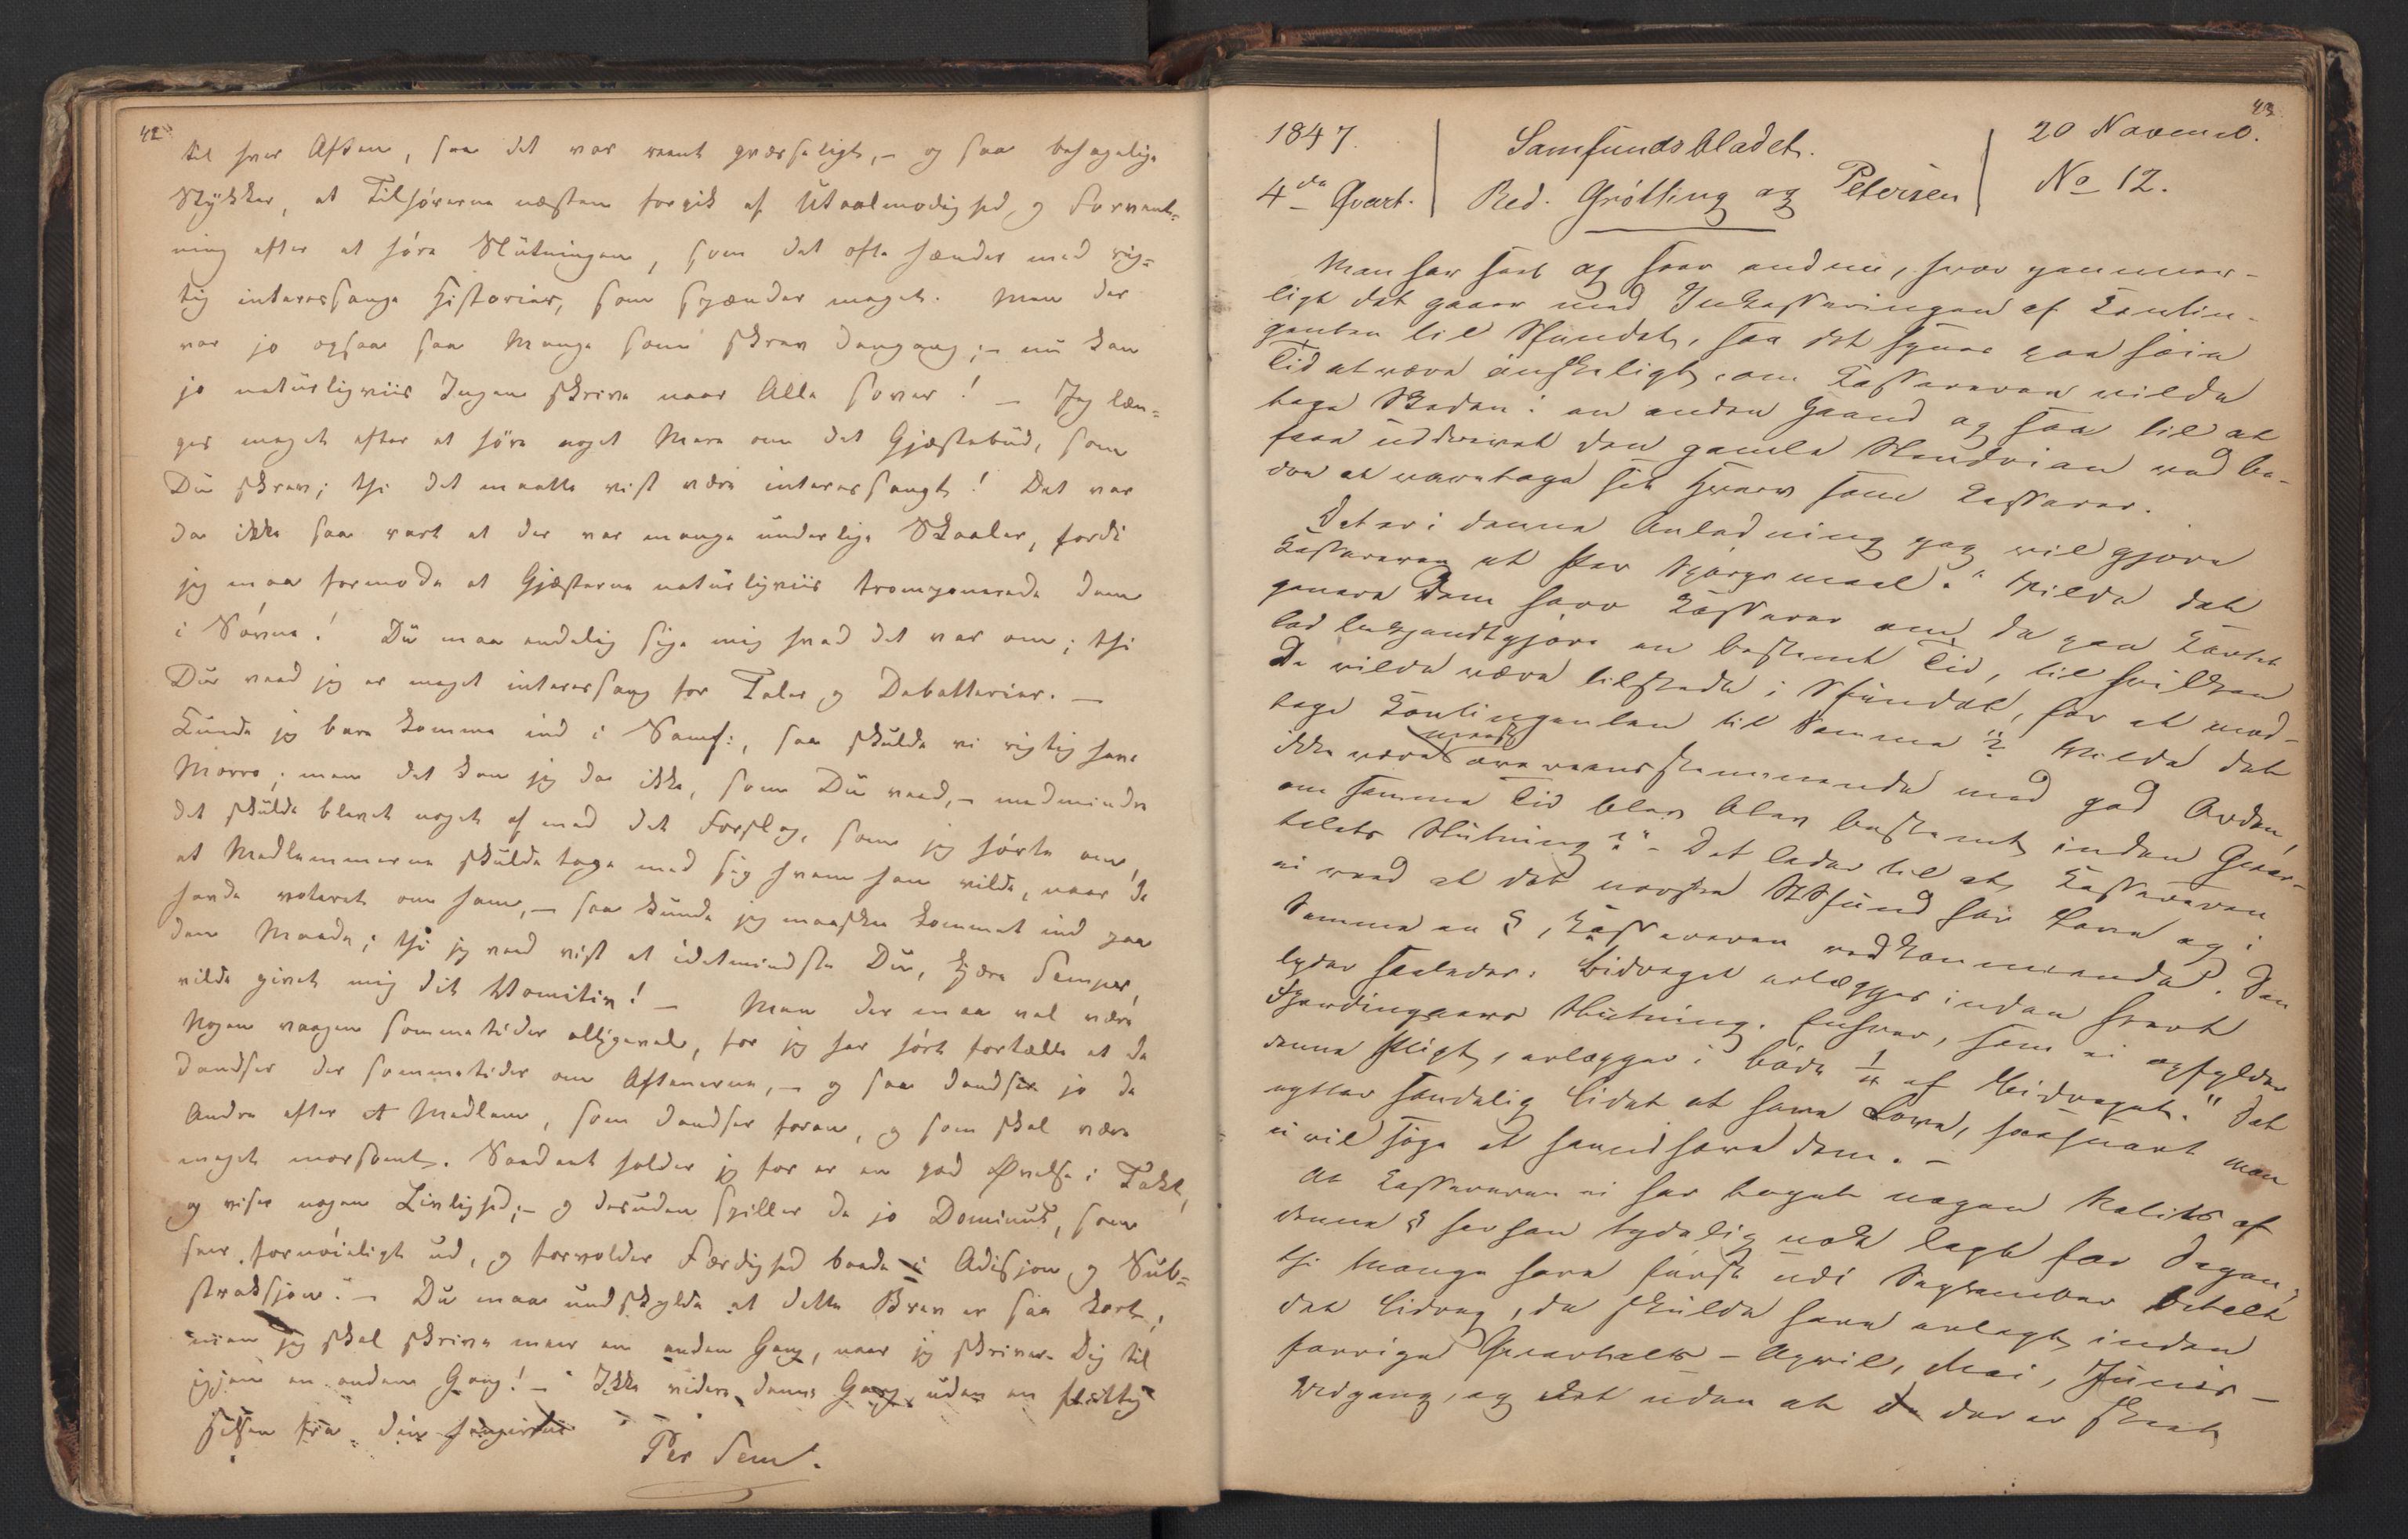 42
til hver Aften, saa det var reent græsseligt, – og saa behagelige
Stykker, at Tilhørerne næsten forgik af Utaalmodighed og Forvent=
ning efter at høre Slutningen, som det ofte hænder med rig=
tig interessange Historier, som spænder meget. Men der
var jo ogsaa saa Mange som skrev dengang; – nu kan
jo naturligviis Ingen skrive naar Alle sover! – Jeg læn=
ges meget efter at høre noget Mere om det Gjæstebud, som
Du skrev; thi det maatte vist være interessangt! Det var
da ikke saa rart at der var mange underlige Skaaler, fordi
jeg maa formode at Gjæsterne naturligviis tromponerede dem
i Søvne! Du maa endelig sige mig hvad det var om; thi
Du veed jeg er meget interessang for Taler og Debatterier. –
Kunde jeg bare komme ind i Samf:, saa skulde vi rigtig have
Morro; men det kan jeg da ikke, som Du veed, – medmindre
det skulde blevet noget af med det Forslag, som jeg hørte om,
at Medlemmerne skulde tage med sig hvem han vilde, naar de
havde voteret om ham, – saa kunde jeg maaskee kommet ind paa
den Maade; thi jeg veed vist at idetmindste Du, kjære Semper,
vilde givet mig dit Vomitiv! – Men der maa vel være
Nogen vaagen sommetider alligevel, for jeg har hørt fortælle at de
dandser der sommetider om Aftenerne, – og saa dandser jo de
Andre efter et Medlem, som dandser foran, og som skal være
meget morsomt. Saadant holder jeg for er en god Øvelse i Takt,
og viser nogen Livlighed; – og desuden spiller de jo Dominut, som
seer fornøieligt ud, og forvolder Færdighed baade i Adisjon og Sub=
straksjon. – Du maa undskylde at dette Brev er saa kort;
men jeg skal skrive meer en anden Gang, naar jeg skriver Dig til
igjen en anden Gang! – Ikke videre denne Gang, uden en flittig
hilsen fra din
Per Sem.
43
1847.
4de Qvart.
Samfundsbladet.
Red. Grøtting og Petersen
20 Novemb.
No 12.
Man har seet og seer endnu, hvor jammer-
ligt det gaaer med Inkasseringen af Kontin-
genten til Sfundet, saa det synes paa høie
Tid at være ønskeligt, om Kassereren vilde
tage Skeden i en anden Haand og saa til at
faae uddrevet den gamle Slendrian ved be-
dre at varetage sit Hverv som Kasserer.
Det er i denne Anledning jeg vil gjøre
Kassereren et Par Spørgsmaal. "Vilde det
genere Dem Herr Kasserer om De paa Kortet
lod bekjendtgjøre en bestemt Tid, til hvilken
De vilde være tilstede i Sfundet, for at mod-
tage Kontingenten til Samme"? Vilde det
ikke være meest overeensstemmende med god Orden,
om samme Tid blev bestemt inden Qvar-
talets Slutning?" – Det lader til at Kassereren
ei veed at det norske StSfund har Love og i
Samme en §, Kassereren vedkommende. Den
lyder saaledes: "Bidraget erlægges inden hvert
Fjerdingaars Slutning. Enhver, som ei opfylder
denne Pligt, erlægger i Bøde 1/4 af Bidraget." Det
nytter sandelig lidet at have Love, saasnart man
ei vil søge at haandhæve dem. –
At Kassereren ei har taget nogen Notits af
denne § har han tydelig nok lagt for Dagen,
thi Mange have først udi September betalt
det Bidrag, de skulde have erlagt inden
forrige Qvartals – April, Mai, Junis –
Udgang, og det uden at der er skeet